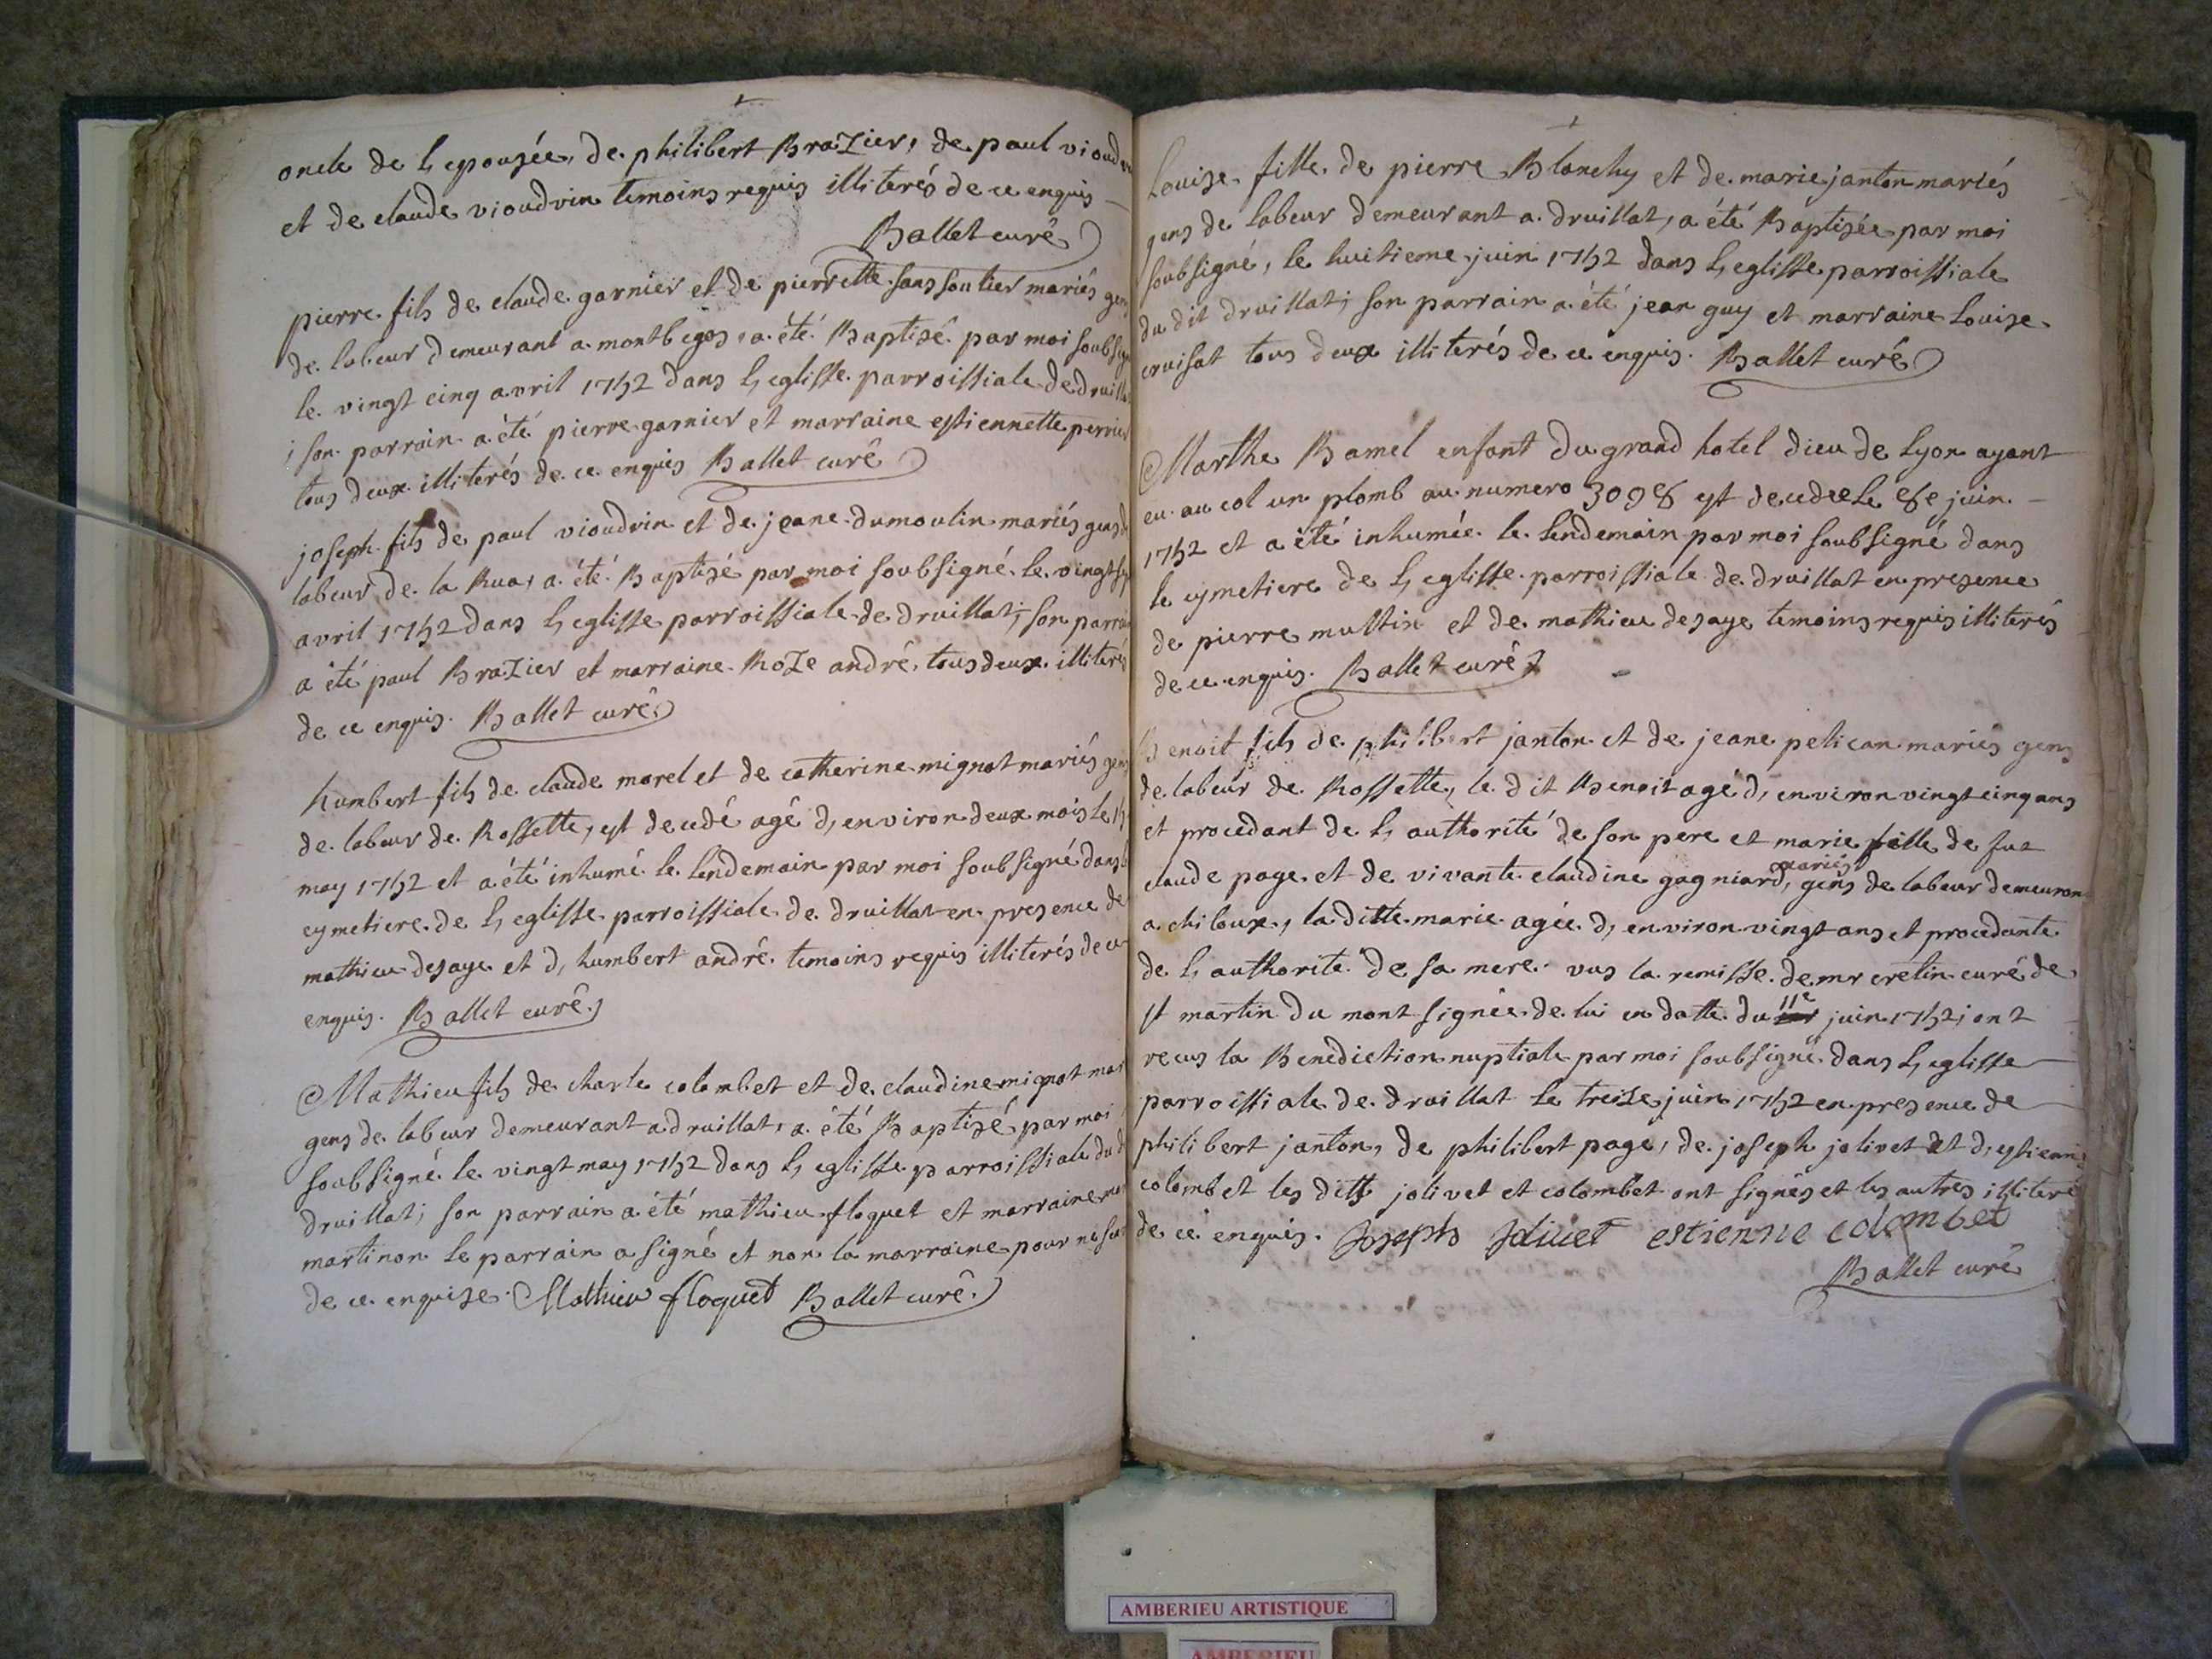 oncle de l, epousée, de philibert Brazier, de paul vioudvin
et de claude vioudvin temoins requis illiterés de ce enquis
Ballet curé
pierre fils de claude garnier et de pierrette sanssoulier mariés gens
de labeur demeurant a montbegos, a été Baptisé par moi soubsigné
le vingt cinq avril 1752 dans l, eglisse parroissiale de druillat
; son parrain a été pierre garnier et marraine estiennette perrier
tous deux illiterés de ce enquis Ballet curé
joseph fils de paul vioudvin et de jeane dumoulin mariés gens de
labeur de la Rua, a été Baptisé par moi soubsigné le vingt
avril 1752 dans l, eglisse parroissiale de druillat; son parrain
a été paul Brazier et marraine Roze andré, tous deux illiterés
de ce enquis. Ballet curé
humbert fils de claude morel et de catherine mignot mariés gens
de labeur de Rossette, est decedé agé d, environ deux mois le 15
may 1752 et a été inhumé le lendemain par moi soubsigné dans le
cymetiere de l, eglisse parroissiale de druillat en presence de
mathieu desaye et d, humbert andré temoins requis illiterés de ce
enquis. Ballet curé.
Mathieu fils de charle colombet et de claudine mignot mariés
gens de labeur demeurant a druillat, a été Baptisé par moi
soubsigné le vingt may 1752 dans l, eglisse parroissiale du dit
druillat; son parrain a été mathieu floquet et marraine
martinon le parrain a signé et non la marraine pour ne
de ce enquise. Mathieu floquet Ballet curé.
Louise fille de pierre Blonchy et de marie janton mariés
gens de labeur demeurant a druillat, a été Baptisée par moi
soubsigné, le huitieme juin 1752 dans l, eglisse parroissiale
du dit druillat; son parrain a été jean guy et marraine Louise
cruisat tous deux illiterés de ce enquis. Ballet curé
Marthe Bamel enfant du grand hotel dieu de Lyon ayant
eu au col un plomb au numero 3098 est decedée le 8e juin
1752 et a été inhumée le lendemain par moi soubsigné dans
le cymetiere de l, eglisse parroissiale de druillat en presence
de pierre multin et de mathieu desaye temoins requis illiterés
de ce enquis. Ballet curé
Benoit fils de philibert janton et de jeane pelican mariés gens
de labeur de Rossette, le dit Benoit agé d, environ vingt cinq ans
et procedant de l, authorité de son pere et marie fille de fut
claude page et de vivante claudine gagniard, mariés gens de labeur demeurant
a chiloux, la ditte marie agée d, environ vingt ans et procedante
de l, authorité de sa mere. vus la remisse de mr cretin curé de
st martin du mont signée de lui en datte du 11e juin 1752; ont
recus la Benediction nuptiale par moi soubsigné dans l, eglisse
parroissiale de druillat le treize juin 1752 en presence de
philibert janton, de philibert page, de joseph jolivet et d, estienne
colombet les dits jolivet et colombet ont signés et les autres illiterés
de ce enquis. Joseph Jolivet estienne colombet
Ballet curé
AMBERIEU ARTISTIQUE
AMBERIEU